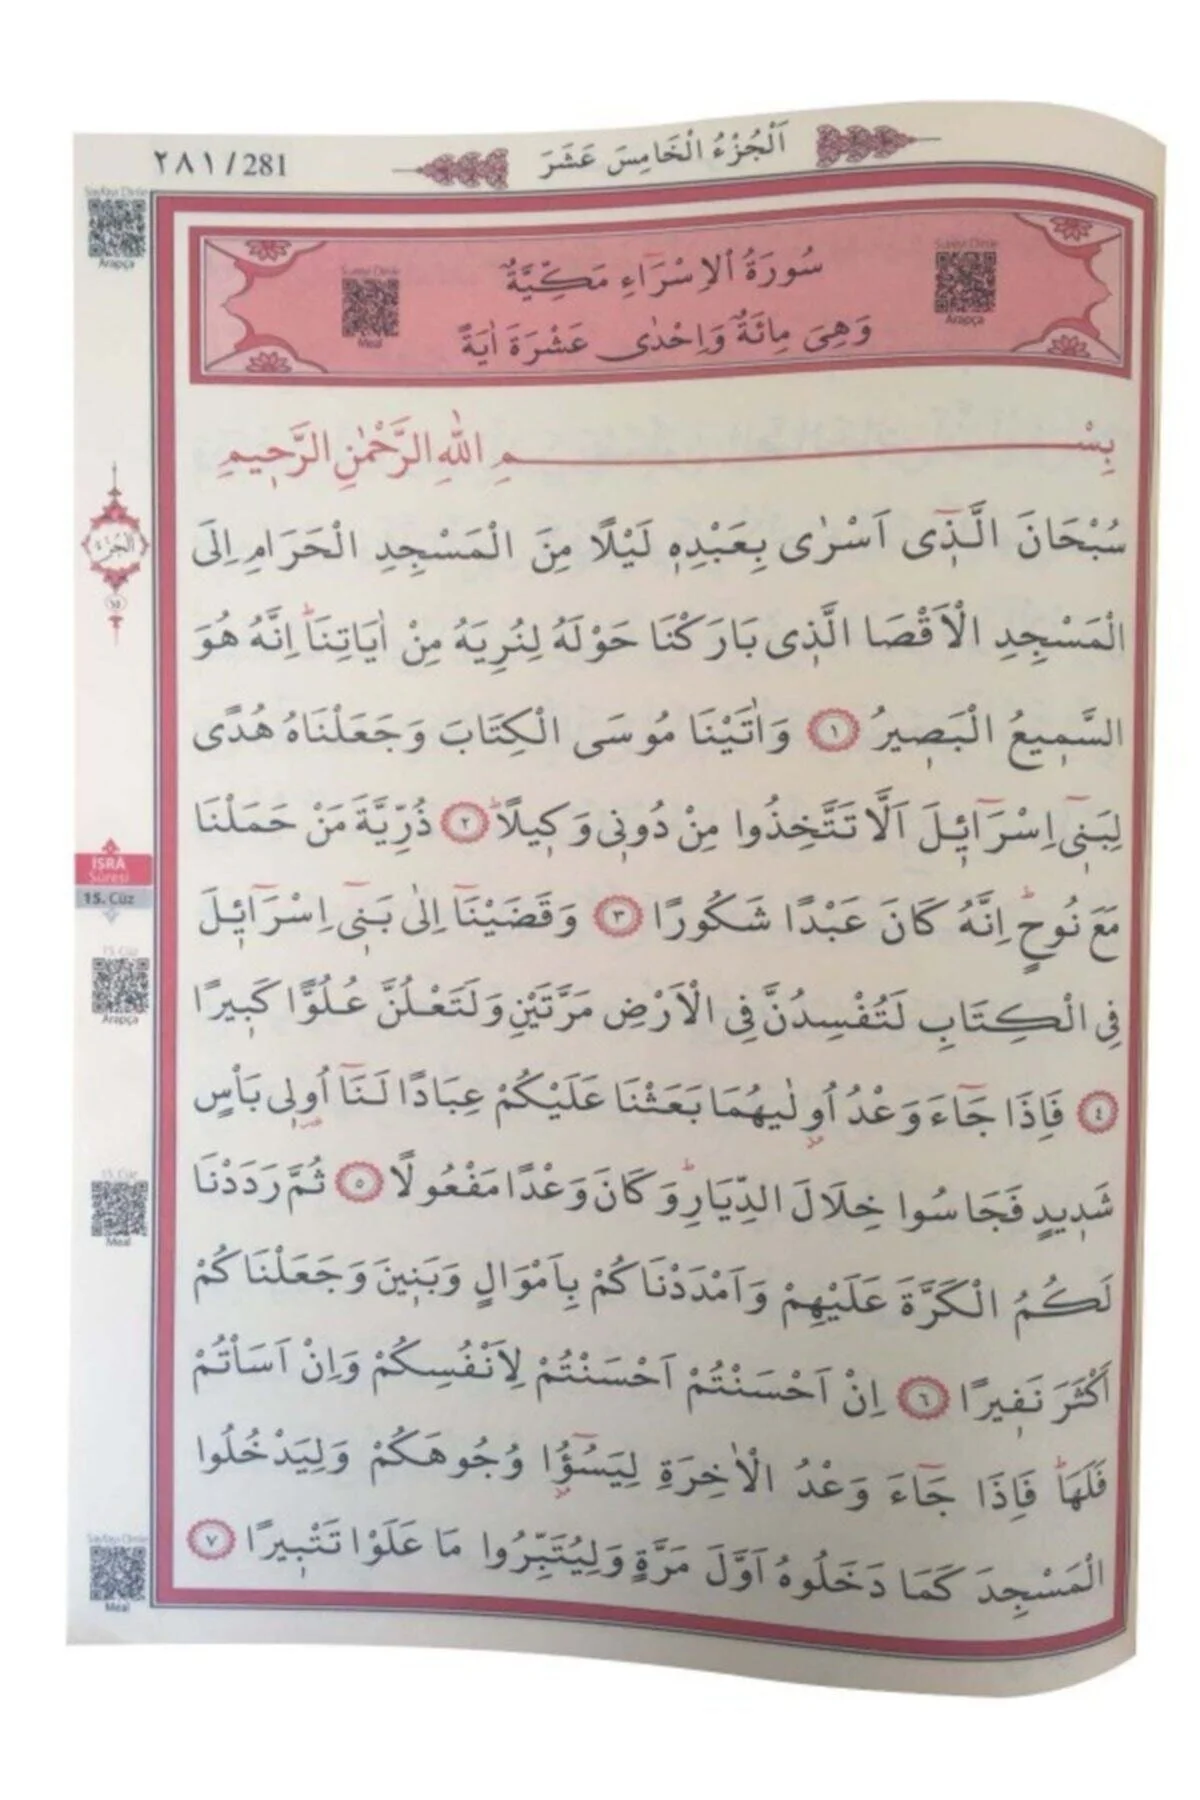 ٢٨١/281
اَلْجُزْءُ الْخَامِسَ عَشَرَ
Sayfayı Dinle
Arapça
سُورَةُ الْاِسْرَٓاءِ مَكِّيَّةٌ
Sureyi Dinle
Meal
Sureyi Dinle
Arapça
وَهِىَ مِائَةٌ وَاِحْدٰى عَشْرَةَ اٰيَةً
بِسْمِ اللّٰهِ الرَّحْمٰنِ الرَّحٖيمِ
سُبْحَانَ الَّذٖٓى اَسْرٰى بِعَبْدِهٖ لَيْلًا مِنَ الْمَسْجِدِ الْحَرَامِ اِلَى
الْمَسْجِدِ الْاَقْصَا الَّذٖى بَارَكْنَا حَوْلَهُ لِنُرِيَهُ مِنْ اٰيَاتِنَاۜ اِنَّهُ هُوَ
السَّمٖيعُ الْبَصٖيرُ ﴿١﴾ وَاٰتَيْنَا مُوسَى الْكِتَابَ وَجَعَلْنَاهُ هُدًى
لِبَنٖٓى اِسْرَٓائٖلَ اَلَّا تَتَّخِذُوا مِنْ دُونٖى وَكٖيلًاۜ ﴿٢﴾ ذُرِّيَّةَ مَنْ حَمَلْنَا
مَعَ نُوحٍۜ اِنَّهُ كَانَ عَبْدًا شَكُورًا ﴿٣﴾ وَقَضَيْنَٓا اِلٰى بَنٖٓى اِسْرَٓائٖلَ
فِى الْكِتَابِ لَتُفْسِدُنَّ فِى الْاَرْضِ مَرَّتَيْنِ وَلَتَعْلُنَّ عُلُوًّا كَبٖيرًا
﴿٤﴾ فَاِذَا جَٓاءَ وَعْدُ اُو۫لٰيهُمَا بَعَثْنَا عَلَيْكُمْ عِبَادًا لَنَٓا اُو۬لٖى بَاْسٍ
شَدٖيدٍ فَجَاسُوا خِلَالَ الدِّيَارِۜ وَكَانَ وَعْدًا مَفْعُولًا ﴿٥﴾ ثُمَّ رَدَدْنَا
لَكُمُ الْكَرَّةَ عَلَيْهِمْ وَاَمْدَدْنَاكُمْ بِاَمْوَالٍ وَبَنٖينَ وَجَعَلْنَاكُمْ
اَكْثَرَ نَفٖيرًا ﴿٦﴾ اِنْ اَحْسَنْتُمْ اَحْسَنْتُمْ لِاَنْفُسِكُمْ وَاِنْ اَسَاْتُمْ
فَلَهَاۜ فَاِذَا جَٓاءَ وَعْدُ الْاٰخِرَةِ لِيَسُٓؤُ۫ا وُجُوهَكُمْ وَلِيَدْخُلُوا
الْمَسْجِدَ كَمَا دَخَلُوهُ اَوَّلَ مَرَّةٍ وَلِيُتَبِّرُوا مَا عَلَوْا تَتْبٖيرًا ﴿٧﴾
الجزء
١٥
İSRÂ
Sûresi
15. Cüz
15. Cüz
Arapça
15. Cüz
Meal
Sayfayı Dinle
Meal